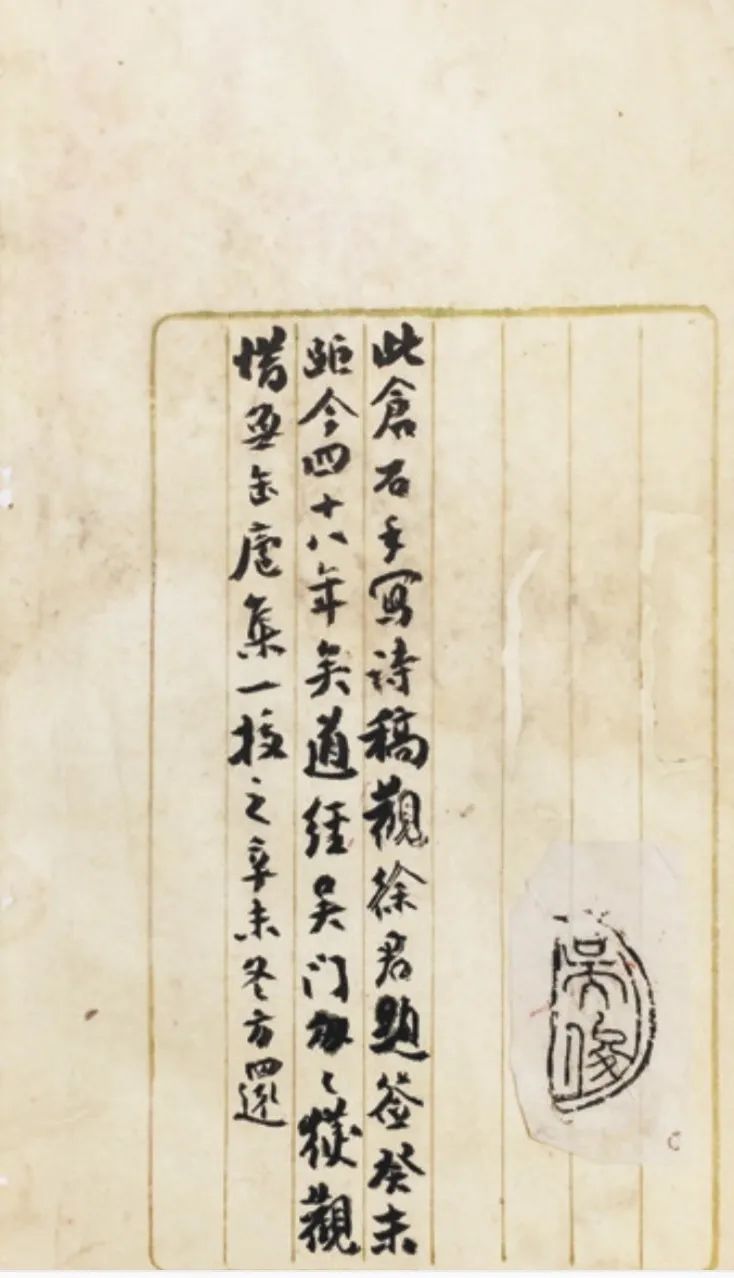 吳俊
此倉石手寫詩稿觀徐君題簽癸未
距今四十八年矣道經吳门匆〻獲觀
惜無缶廬集一校之辛未冬方還